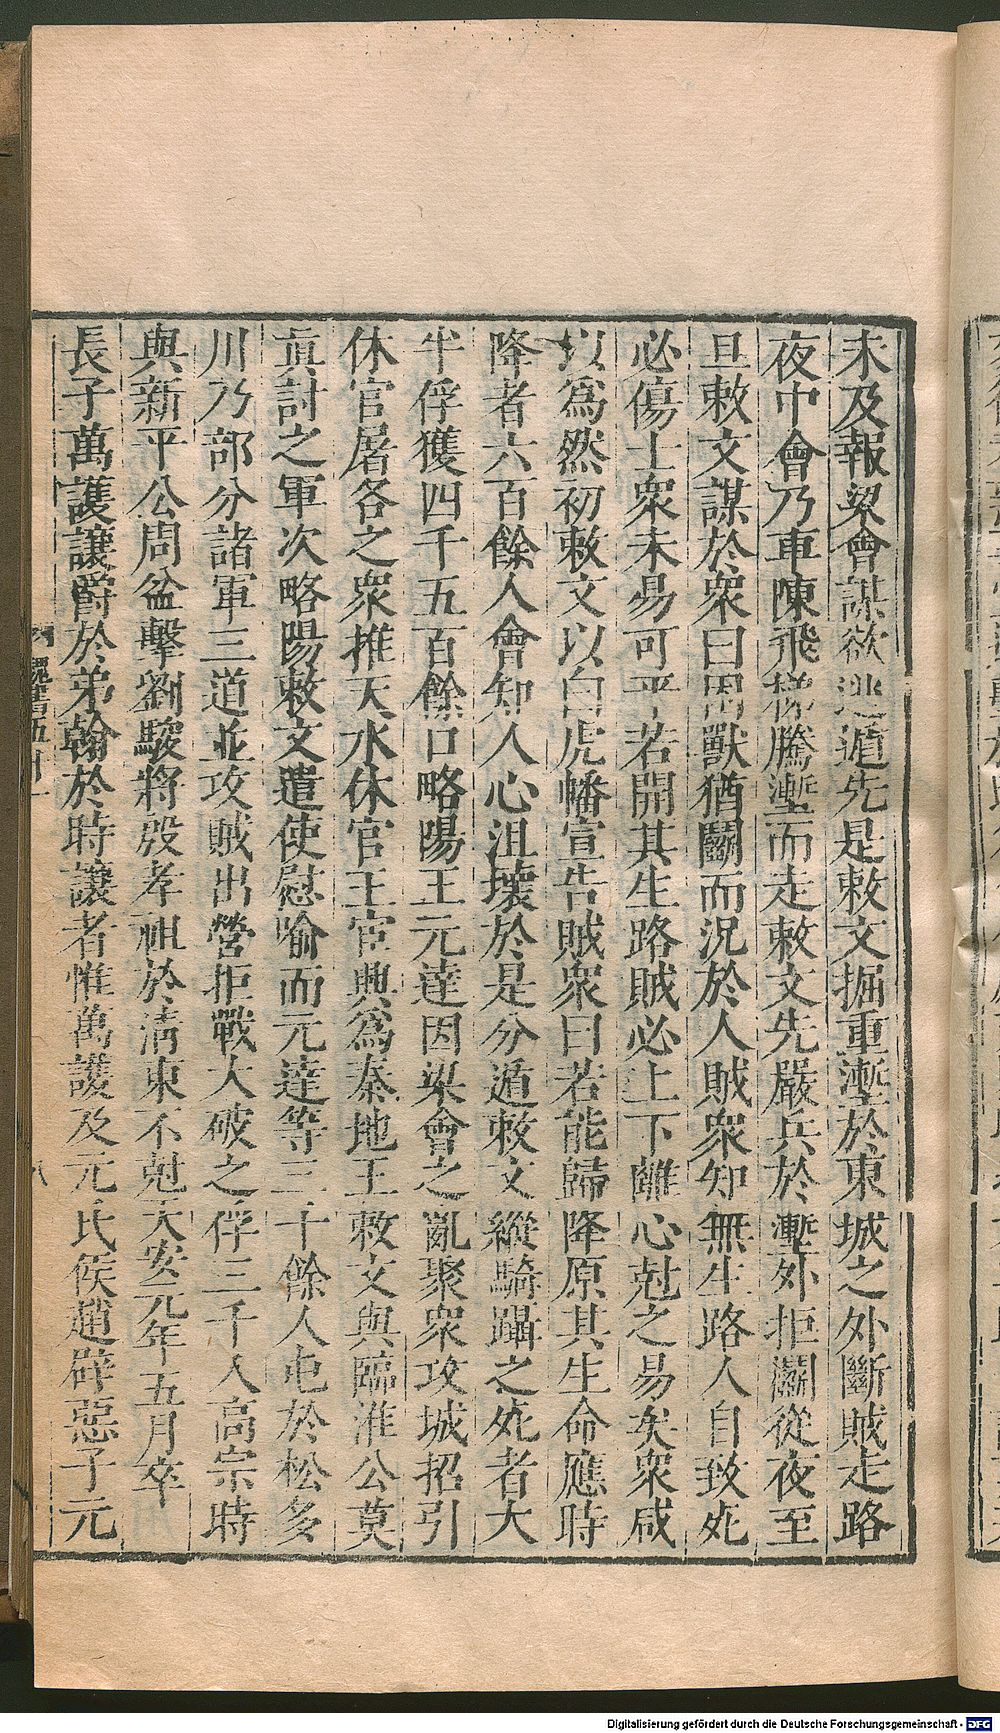 未及報梁會謀欲逃遁先是敕文掘重壍於東城之外斷賊走路
夜中會乃車陳飛梯騰壍而走敕文先嚴兵於壍外拒鬭從夜至
旦敕文謀於衆曰困獸猶鬭而況於人賊衆知無生路人自致死
必傷士衆未易可平若開其生路賊必上下離心尅之易矣衆咸
以爲然初敕文以白虎幡宣告賊衆曰若能歸降原其生命應時
降者六百餘人會知人心沮壞於是分遁敕文縱騎躡之死者大
半俘獲四千五百餘口略陽王元達因梁會之亂聚衆攻城招引
休官屠各之衆推天水休官王官興爲秦地王敕文與臨淮公莫
眞討之軍次略陽敕文遣使慰喻而元達等三千餘人屯於松多
川乃部分諸軍三道並攻賊出營拒戰大破之俘三千人高宗時
與新平公周盆擊劉駿將殷孝祖於清東不尅天安元年五月卒
長子萬護讓爵於弟翰於時讓者惟萬護及元氏侯趙辟惡子元
魏書五十一
八
Digitalisierung gefördert durch die Deutsche Forschungsgemeinschaft - DFG